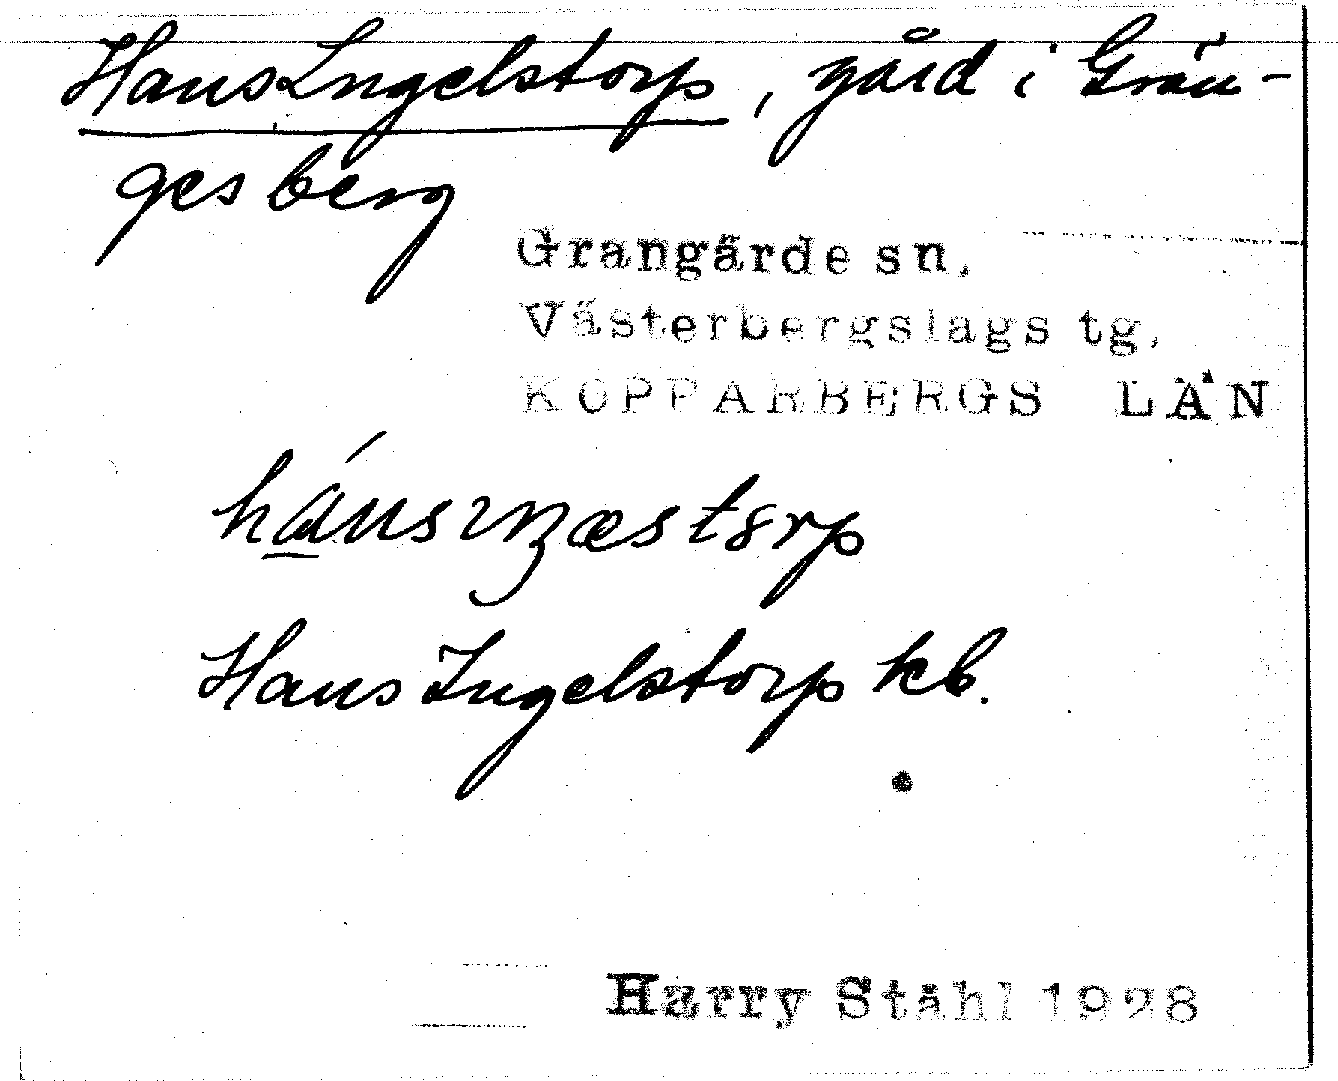 Hans Ingelstorp, gård i Grän-
gesberg
Grangärde sn.
Västerbergslags tg.
KOPPARBERGS LÄN
Hans Ingelstorp kb.
Harry Ståhl 1928